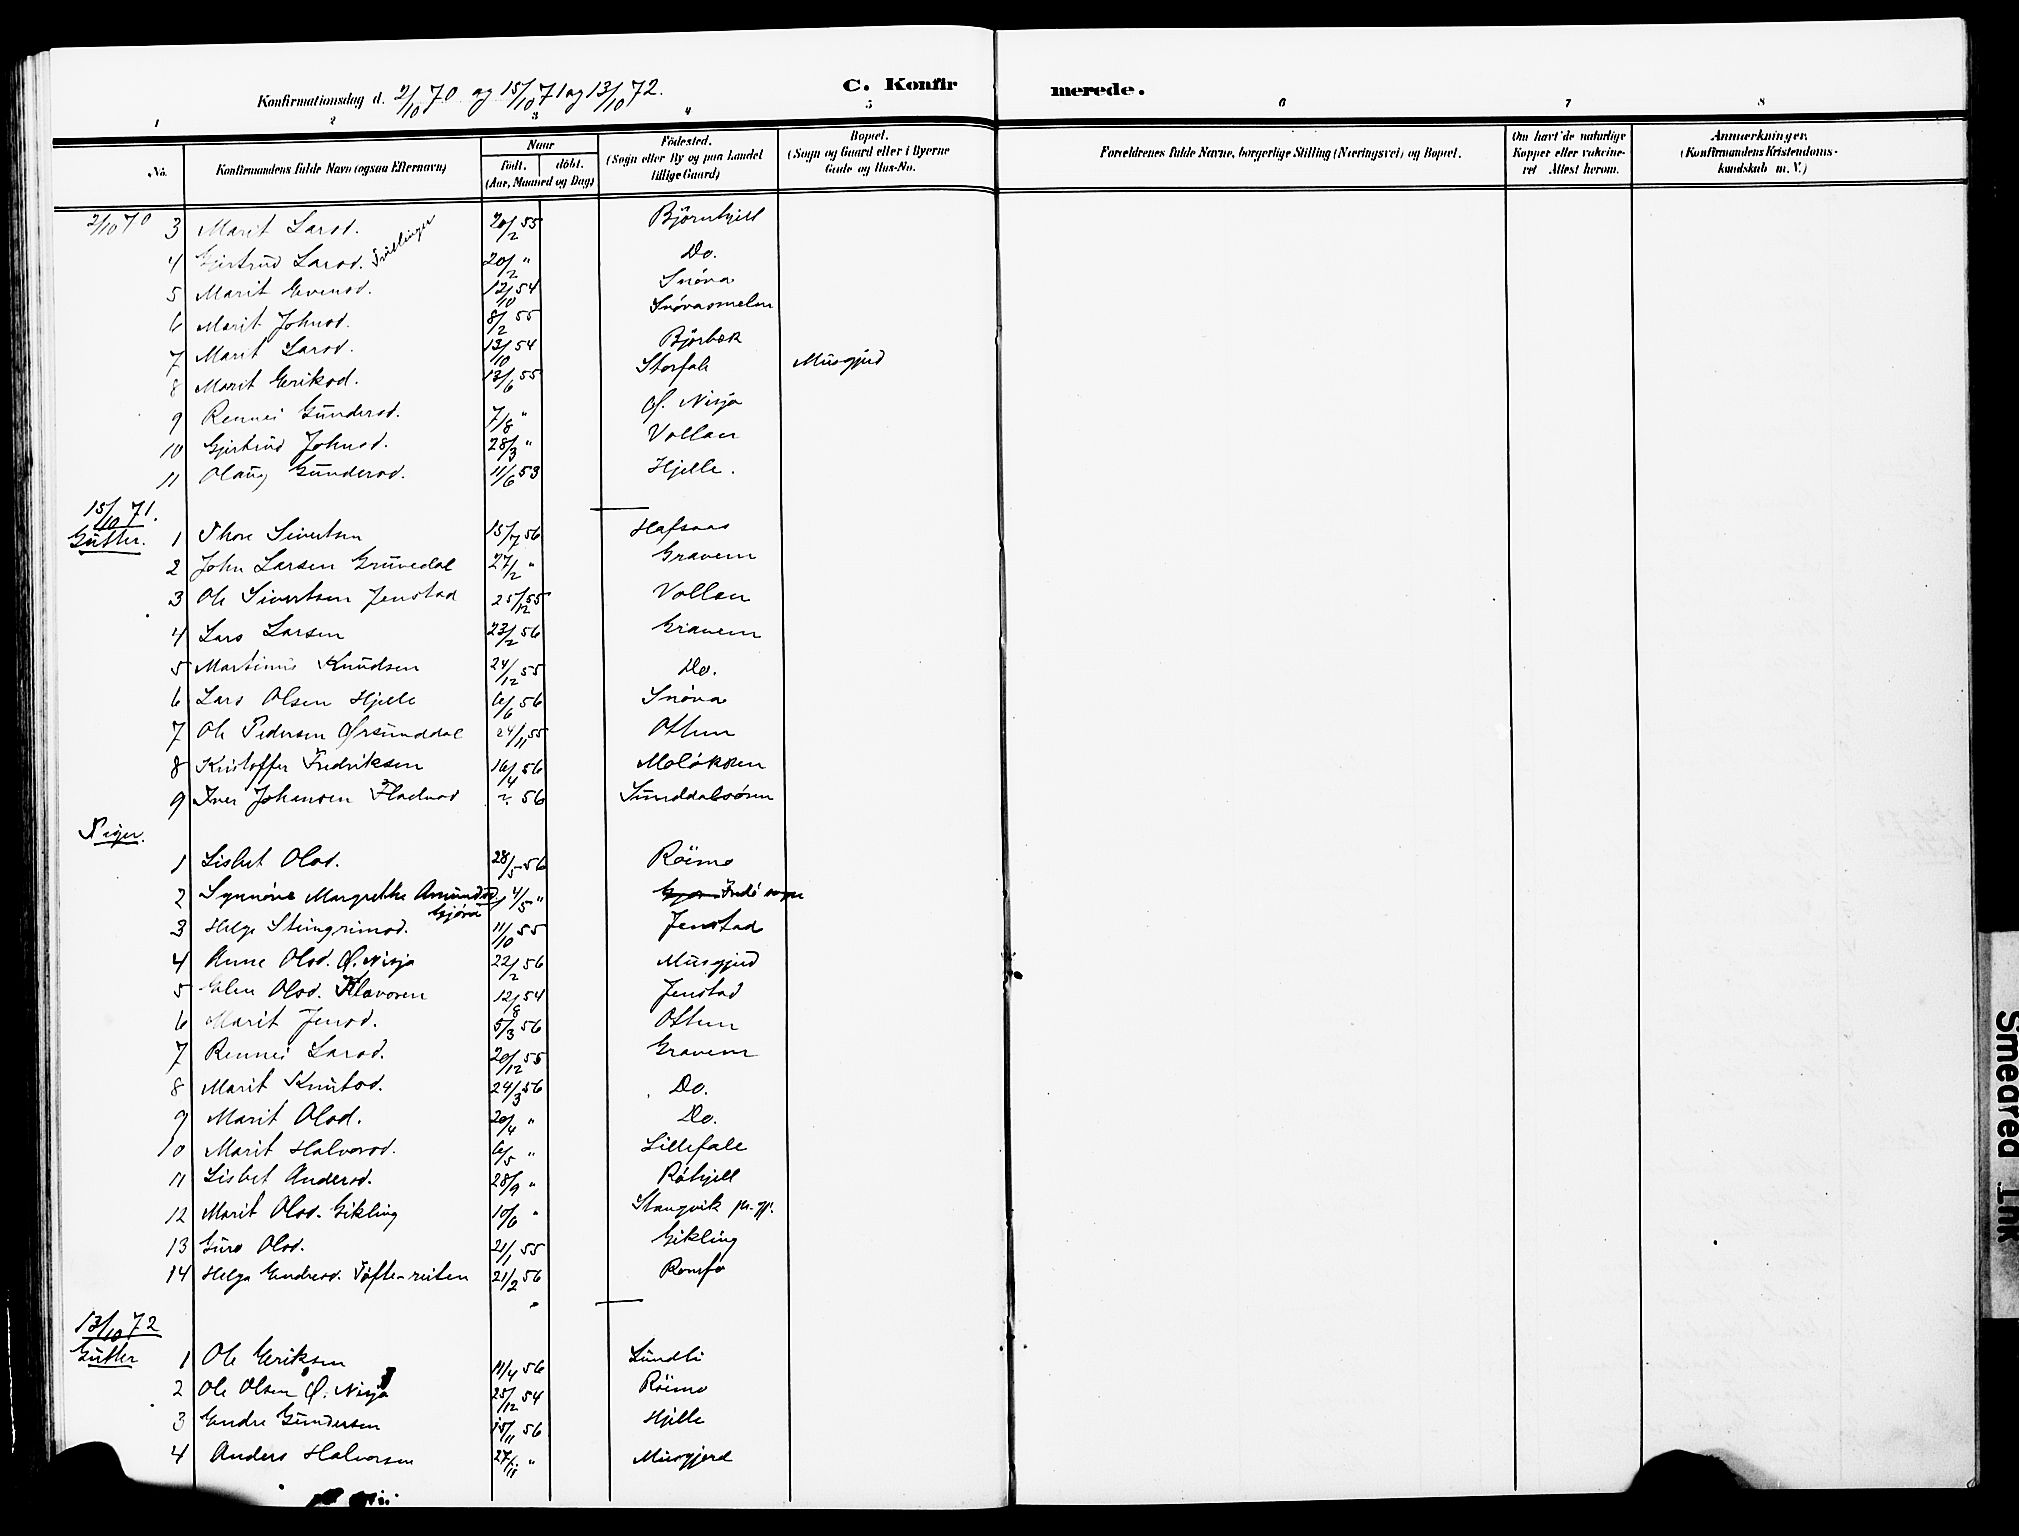 Konfirmationsdag d. 2/10 70 og 15/10 71 og 13/10 72.
C. Konfirmerede.
1 2 3 4 5 6 7 8
No. Konfirmandens fulde Navn (ogsaa Efternavn) Naar Födt. döbt. (Aar, Maaned og Dag) Födested. (Sogn eller By og paa Landet tillige Gaard) Bopæl. (Sogn og Gaard eller i Byerne Gade og Hus-No. Forældrenes fulde Navne, borgerlige Stilling (Næringsvei) og Bopæl. Om havt de naturlige Kopper eller vakcineret Attest herom. Anmærkninger. (Konfirmandens Kristendomskundskab m. V.)
2/10 70 3 Marit Larsd. 20/2 55 Björnhjell
4 Gjertrud Larsd. Tvillinger 20/2 " Do.
5 Marit Evensd. 12/10 54 Snöva
6 Marit Johnsd. 8/2 55 Snövasmelen
7 Marit Larsd. 13/10 54 Björbæk
8 Marit Eriksd. 13/6 55 Storfale Musgjerd
9 Rennei Gundersd. 7/8 " Ø. Nisja
10 Gjertrud Johnsd. 28/3 " Vollan
11 Olaug Gundersd. 11/6 53 Hjelle.
15/10 71.
Gutter. 1 Thore Sivertsen 15/7 56 Hafsaas
2 John Larsen Gruvedal 27/2 " Gravem
3 Ole Sivertsen Jenstad 25/12 55 Vollan
4 Lars Larsen 23/2 56 Gravem
5 Martinus Knudsen 24/12 55 Do.
6 Lars Olsen Hjelle 6/6 56 Snöva
7 Ole Pedersen Ørsunddal 24/11 55 Ottem
8 Kristoffer Fredriksen 16/4 56 Molökken
9 Iver Johansen Fladvad ?. 56 Sunddalsören
Piger.
1 Lisbet Olsd. 28/5 56 Röimo
2 Synnöve Margrethe Amundsd. Gjöra 4/5 " Fredö sogn
3 Helge Steingrimsd. 11/10 55 Jenstad
4 Anne Olsd. Ø. Nisja 22/2 56 Musgjerd
5 Elen Olsd. Flavoren 12/8 54 Jenstad
6 Marit Jensd. 5/3 56 Ottem
7 Rennei Larsd. 20/12 55 Gravem
8 Marit Knutsd. 24/3 56 Do.
9 Marit Olsd. 20/4 " Do.
10 Marit Halvorsd. 6/5 " Lillefale
11 Lisbet Andersd. 28/9 " Röhjell
12 Marit Olsd. Gikling 10/6 " Stangvik pr. gj.
13 Guro Olsd. 21/1 55 Gikling
14 Helga Endresd. Töfte-reiten 21/2 56 Romfo
13/10 72
Gutter 1 Ole Eriksen 11/4 56 Lundli
2 Ole Olsen Ø. Nisja 25/12 54 Röimo
3 Endre Gundersen 15/11 56 Hjelle
4 Anders Halvorsen 27/11 " Musgjerd
Smeared Ink